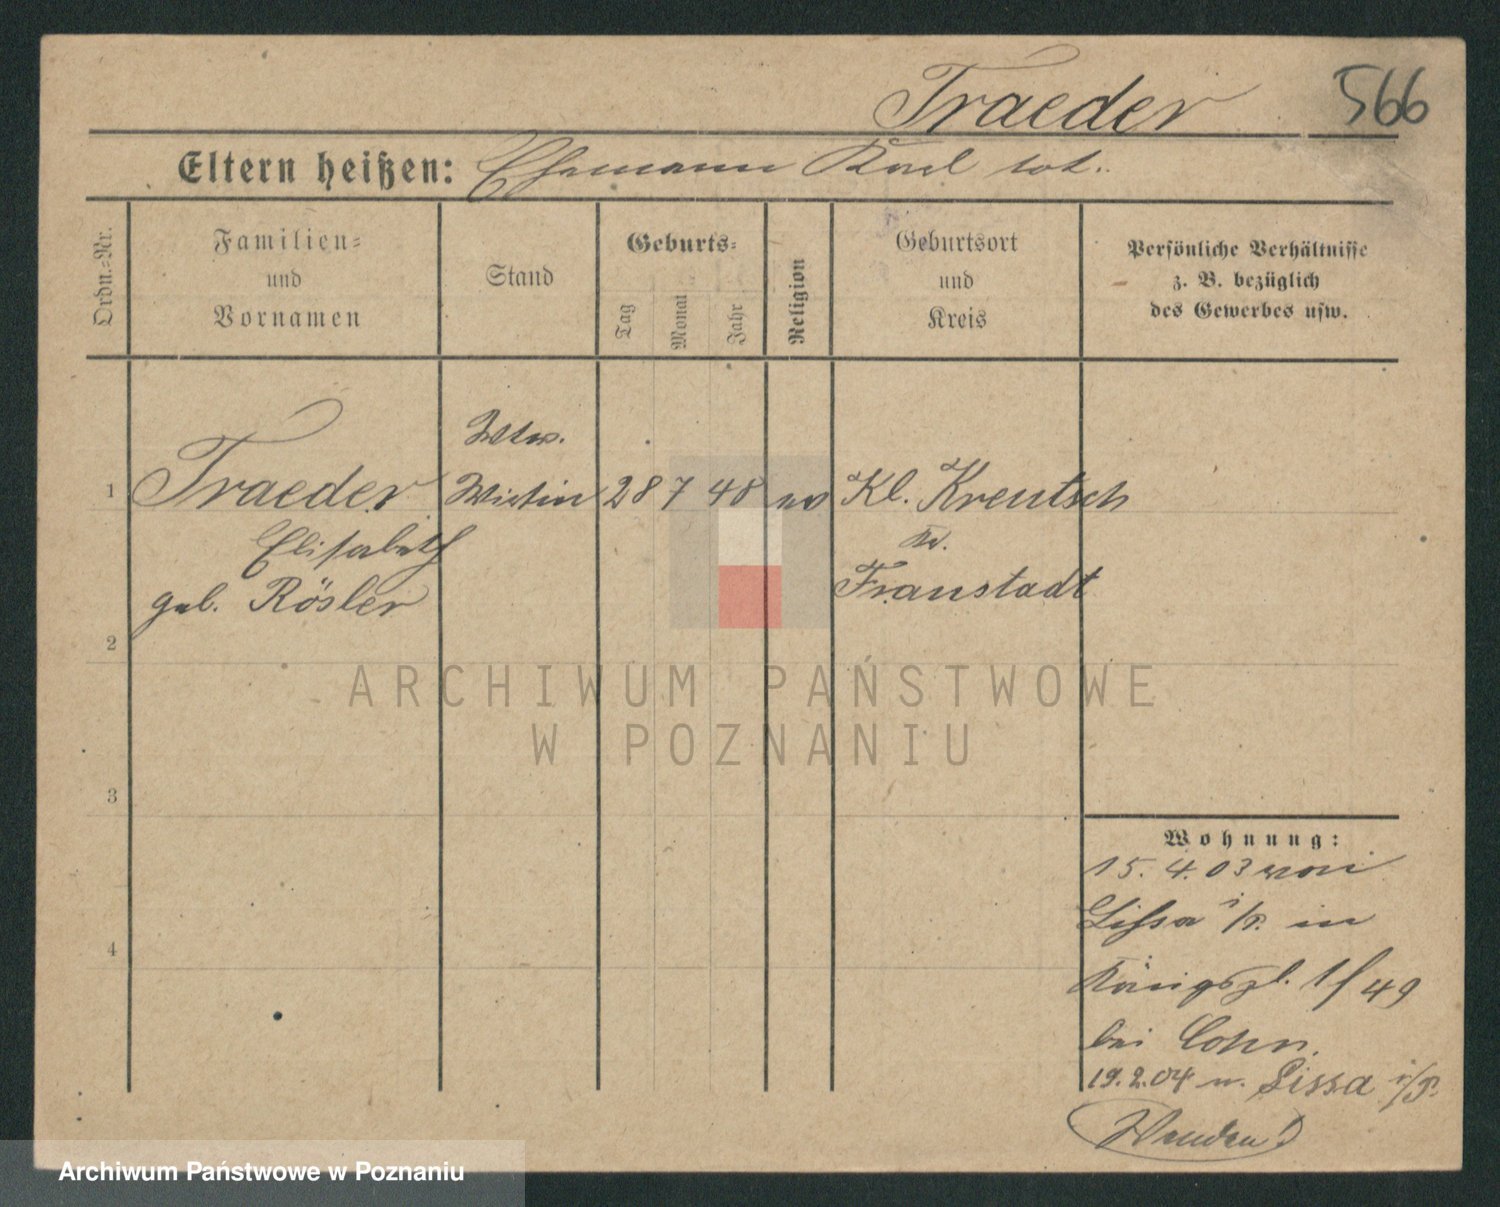 Traeder
566
Eltern heißen: Ehemann Karl tot.
Ordn.=Nr.
Familien=
und
Vornamen
Stand
Geburts=
Tag
Monat
Jahr
Religion
Geburtsort
und
Kreis
Persönliche Verhältnisse
z. B. bezüglich
des Gewerbes usw.
Wtw.
1 Traeder 28 7 48 Kl. Kreutsch
Elisabeth
Kr.
geb. Rösler
Fraustadt
2
3
4
ARCHIWUM PAŃSTWOWE
W POZNANIU
Wohnung:
15. 4. 03 von
Lissa i/P. in
Königspl. 1/49
bei Cohn.
19.2.04 n. Lissa i/P.
Archiwum Państwowe w Poznaniu